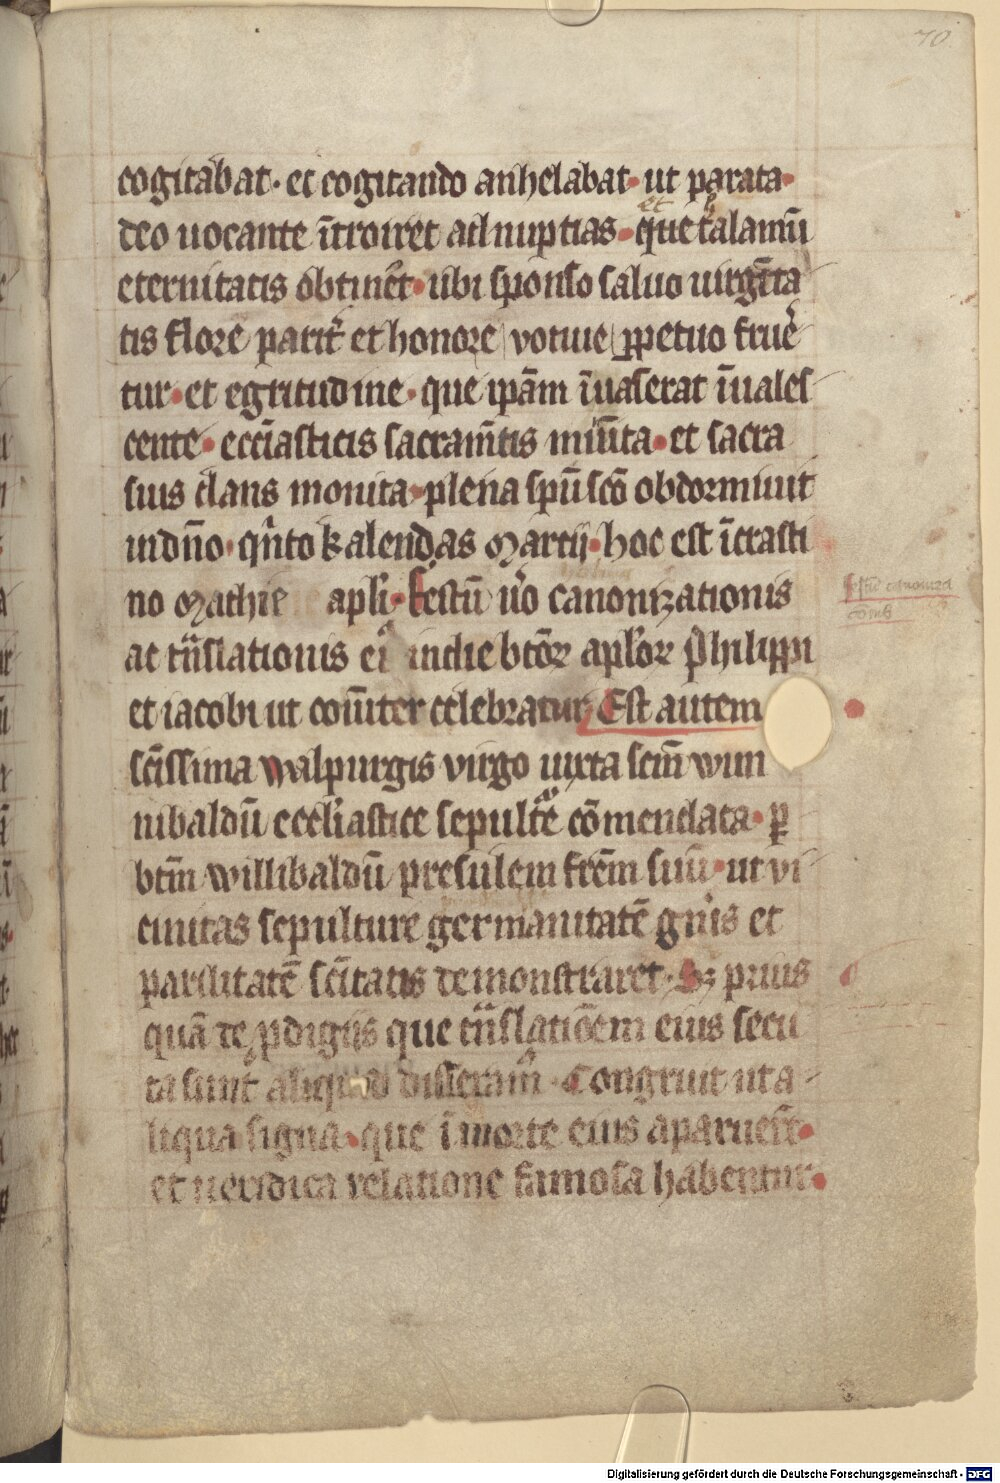 70
cogitabat · et cogitando anhelabat · ut parata ·
deo uocante ītroiret ad nuptias · et que thalamū
eternitatis obtinēt · ubi sponso saluo uirgīta
tis flore parit̄ et honore votiue ꝑpetuo frue
tur · et egritudine · que ipām īuaserat īuales
cente · eccīasticis sacram̄tis miīta · et sacra
suis dans monita · plena spū scō obdormiuit
in dn̄o · qⁱnto kalendas Martij · hoc est ī crasti
no Mathie apli · festū ů̄o canonizationis
festū canoniza
cōnis
ac tn̄slationis ei in die btōꝝ aploꝝ Philippi
et iacobi ut com̄iter celebratur Est autem
scīssima walpurgis virgo iuxta scm̄ wun
nibaldū eccliastice sepultͤe cōmendata · ꝑ
btm̄ willibaldū presulem frēm suū · ut vi
cinitas sepulture germanitatē gn̄is et
parilitatē scītatis demonstraret · Sꝫ prius
quā de ꝓdigijs que tn̄slatiōem eius secu
ta sunt aliquid disseram · Congruit ut a
liqua signa · que ī morte eius aparuer̄t ·
et ueridica relatione famosa habentur ·
Digitalisierung gefördert durch die Deutsche Forschungsgemeinschaft - DFG